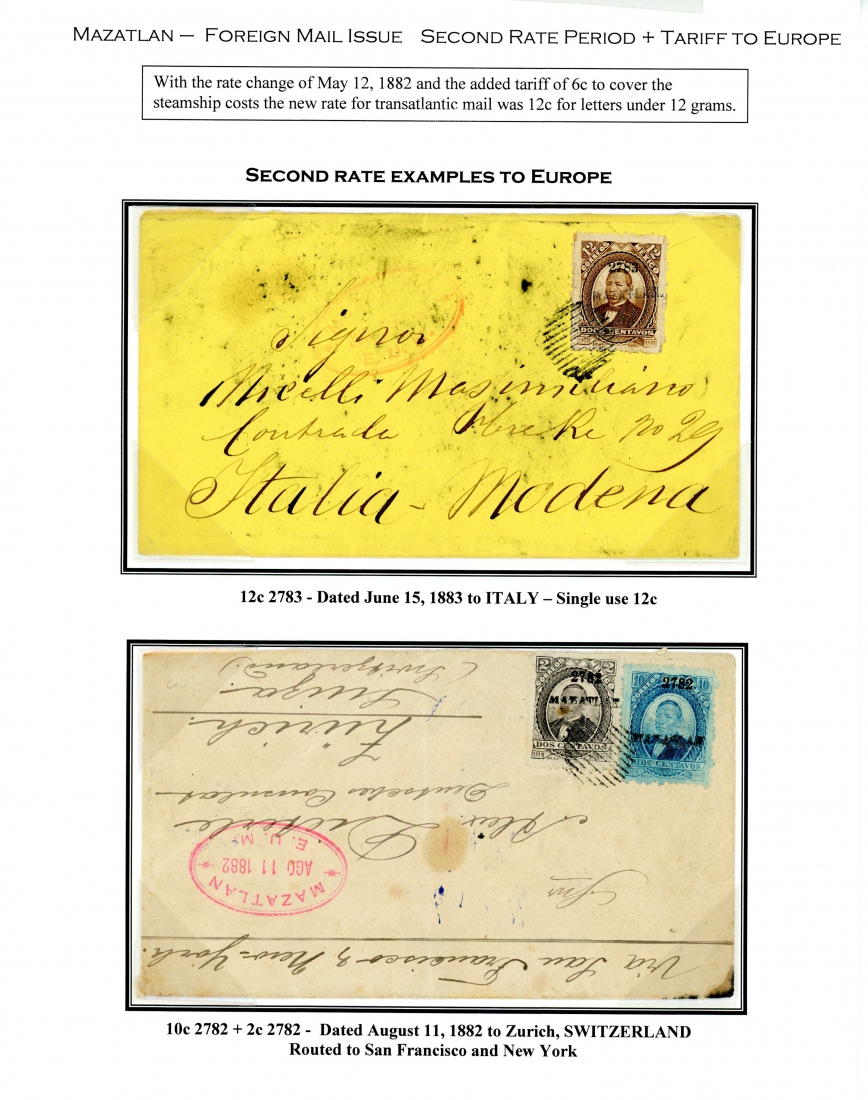 MAZATLAN – FOREIGN MAIL ISSUE SECOND RATE PERIOD + TARIFF TO EUROPE
With the rate change of May 12, 1882 and the added tariff of 6c to cover the
steamship costs the new rate for transatlantic mail was 12c for letters under 12 grams.
SECOND RATE EXAMPLES TO EUROPE
12 12
2783
DOCE CENTAVOS
E. U.
Signor
Micelli Masimiliano
Contrada No 29
Italia - Modena
12c 2783 - Dated June 15, 1883 to ITALY – Single use 12c
2 2
2782
MAZATL
DOS CENTAVOS
10 10
2782
MAZATLAN
DIEZ CENTAVOS
Via San Francisco & New-York.
MAZATLAN
AGO 11 1882
E. U. M.
Alex.
Deutsches Consulat
Zürich.
Suiza.
(Switzerland.)
10c 2782 + 2c 2782 - Dated August 11, 1882 to Zurich, SWITZERLAND
Routed to San Francisco and New York